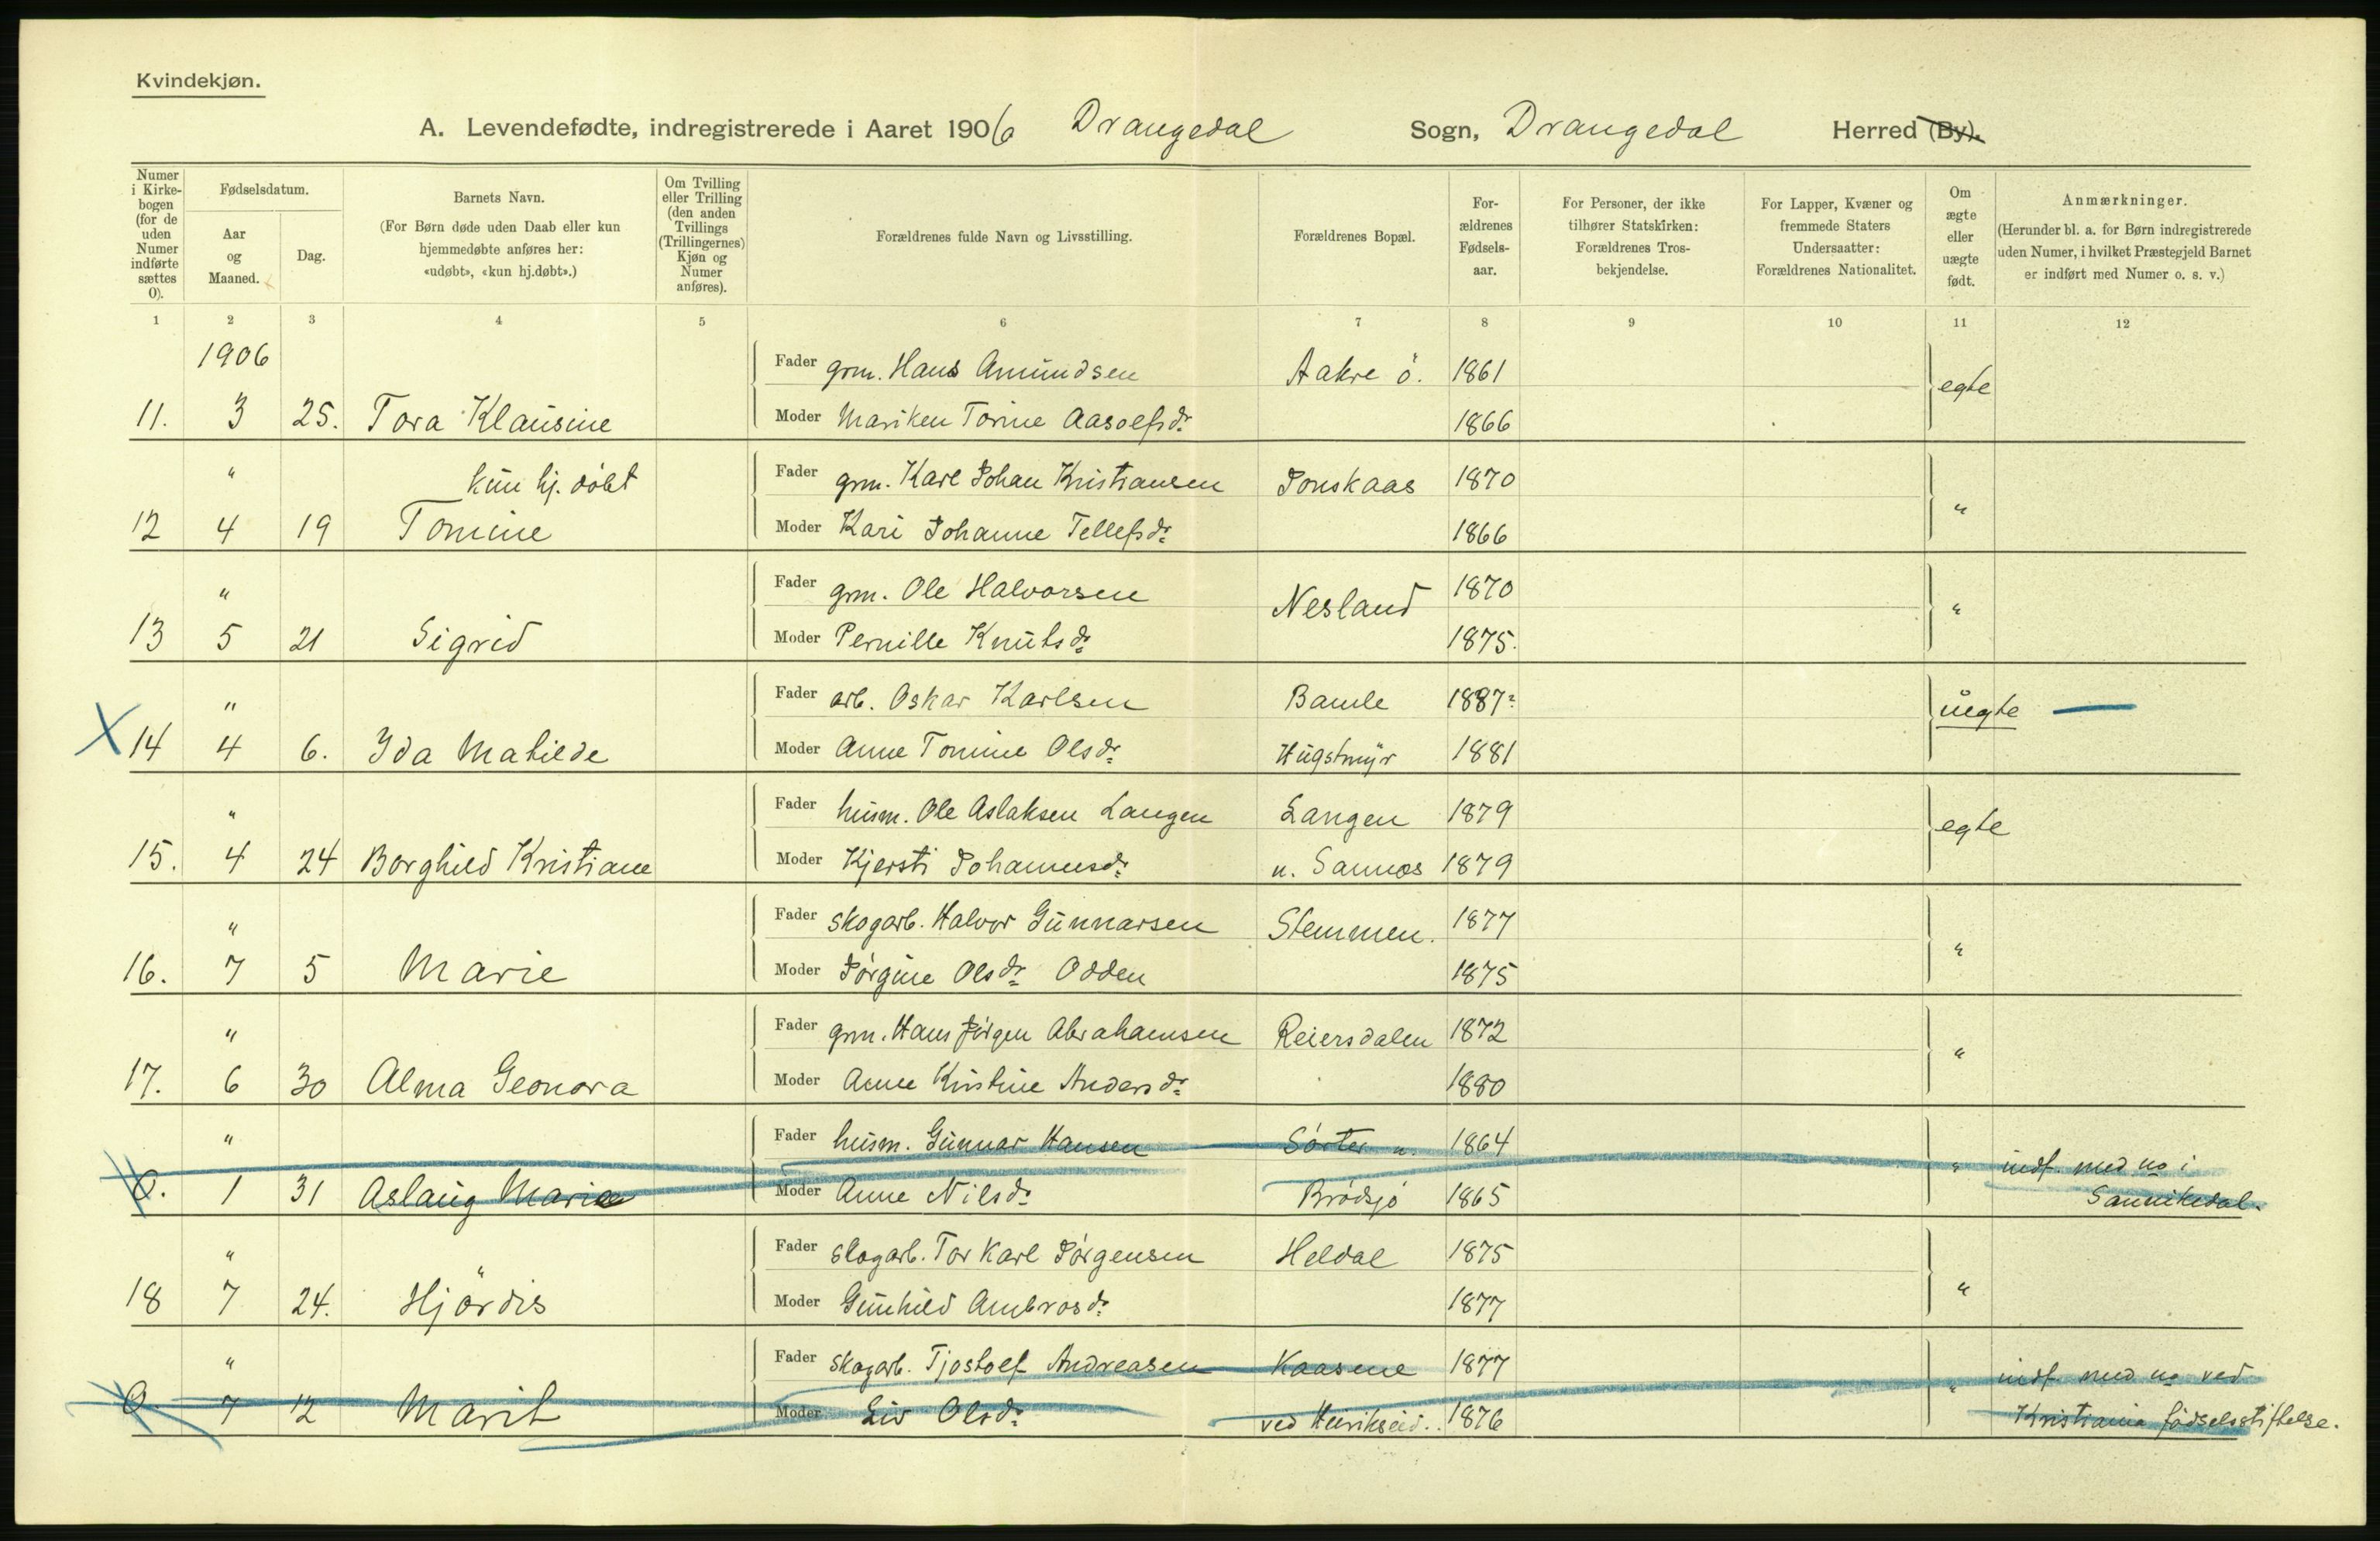 Kvindekjøn.
A. Levendefødte, indregistrerede i Aaret 1906 Drangedal Sogn, Drangedal Herred (By).
Numer i Kirke-bogen (for de uden Numer indførte sættes 0).
Fødselsdatum.
Aar og Maaned.
Dag.
Barnets Navn.
(For Børn døde uden Daab eller kun hjemmedøbte anføres her: «udøbt», «kun hj.døbt».)
Om Tvilling eller Trilling (den anden Tvillings (Trillingernes) Kjøn og Numer anføres).
Forældrenes fulde Navn og Livsstilling.
Forældrenes Bopæl.
For-ældrenes Fødsels-aar.
For Personer, der ikke tilhører Statskirken: Forældrenes Tros-bekjendelse.
For Lapper, Kvæner og fremmede Staters Undersaatter: Forældrenes Nationalitet.
Om ægte eller uægte født.
Anmærkninger.
(Herunder bl. a. for Børn indregistrerede uden Numer, i hvilket Præstegjeld Barnet er indført med Numer o. s. v.)
1 2 3 4 5 6 7 8 9 10 11 12
1906 Fader grm. Hans Amundsen Aakre ö. 1861 egte
11. 3 25. Tora Klausine Moder Mariken Torine Aasolfsdr 1866
" kun hj. döbt Fader grm. Karl Johan Kristiansen Jonskaas 1870 "
12 4 19 Tomine Moder Kari Johanne Tellefsdr 1866
" Fader grm. Ole Halvorsen Nesland 1870 "
13 5 21 Sigrid Moder Pernille Knutsdr 1875.
" Fader arb. Oskar Karlsen Bamle 1887 uegte —
X 14 4 6. Ida Matilde Moder Anne Tomine Olsdr Hugstmyr 1881
" Fader husm. Ole Aslaksen Langen Langen 1879 egte
15. 4 24 Borghild Kristiane Moder Kjersti Johannesdr u. Sannes 1879
" Fader skogarb. Halvor Gunnarsen Stemmen. 1877 "
16. 7 5 Marie Moder Jörgine Olsdr Odden 1875
" Fader grm. Hans Jörgen Abrahamsen Reiersdalen 1872 "
17. 6 30 Alma Geonora Moder Anne Kristine Andersdr 1880
" Fader husm. Gunnar Hansen Sörter u. 1864 " indf. med no i
0. 1 31 Aslaug Marie Moder Anne Nilsdr Brödsjö 1865 Sannikedal.
" Fader skogarb. Tor Karl Jörgensen Heldal 1875 "
18 7 24. Hjördis Moder Gunhild Ambrosdr 1877
" Fader skogarb. Tjostolf Andreasen Kaasene 1877 " indf. med no ved
0. 7 12 Marit Moder Liv Olsdr ved Henrikseid. 1876 Kristiania födselsstiftelse.